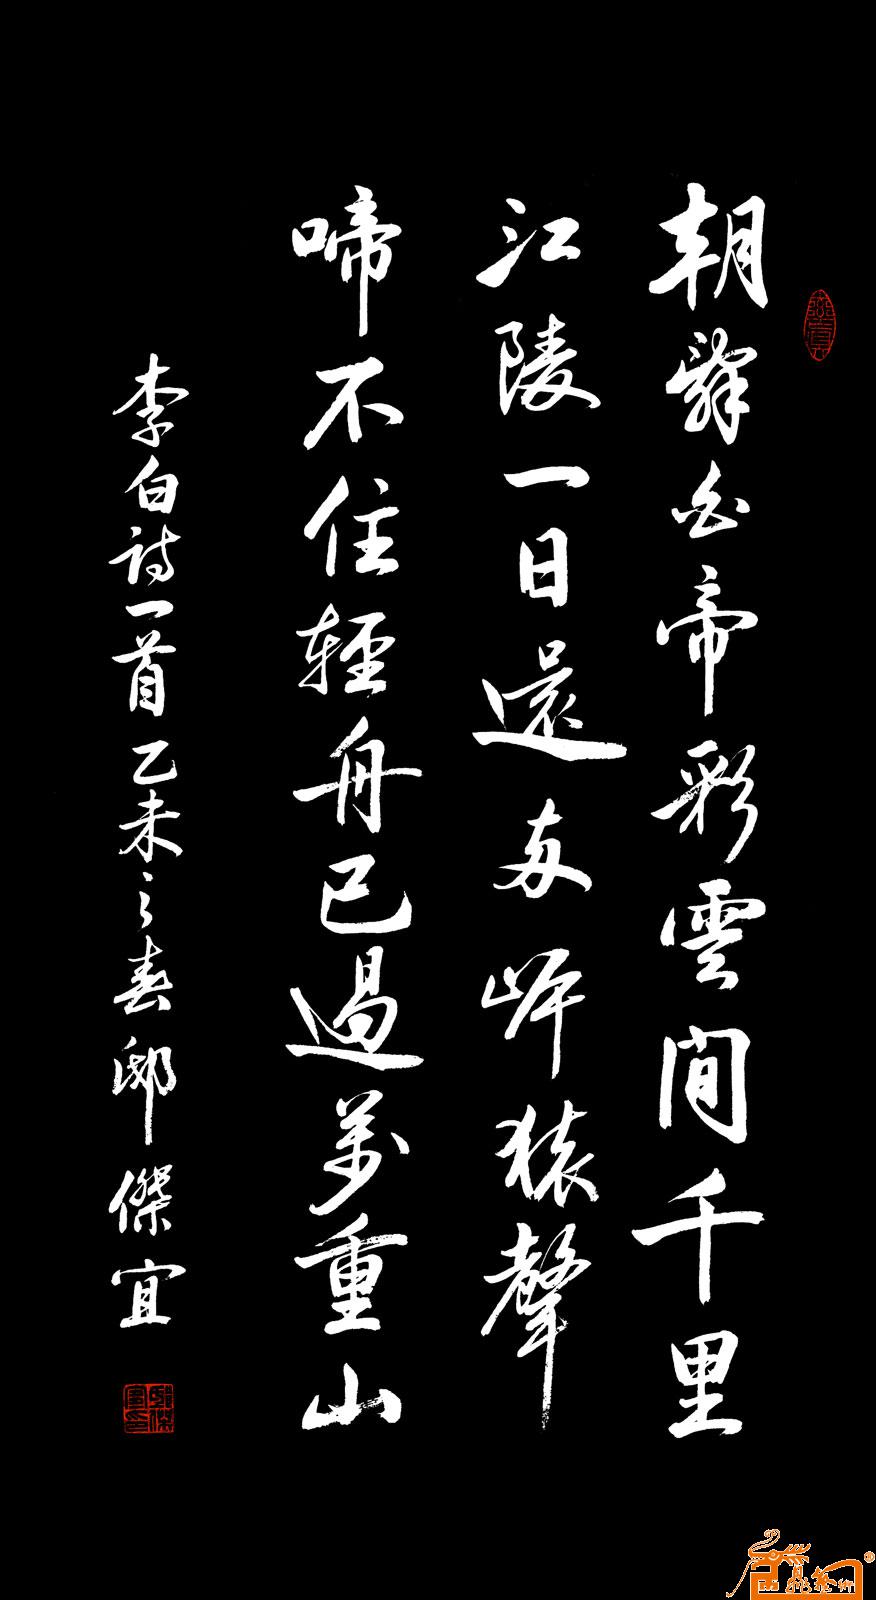 朝辭白帝彩雲間千里
江陵一日還兩岸猿聲
啼不住輕舟已過萬重山
李白詩一首乙未之春邸傑宜